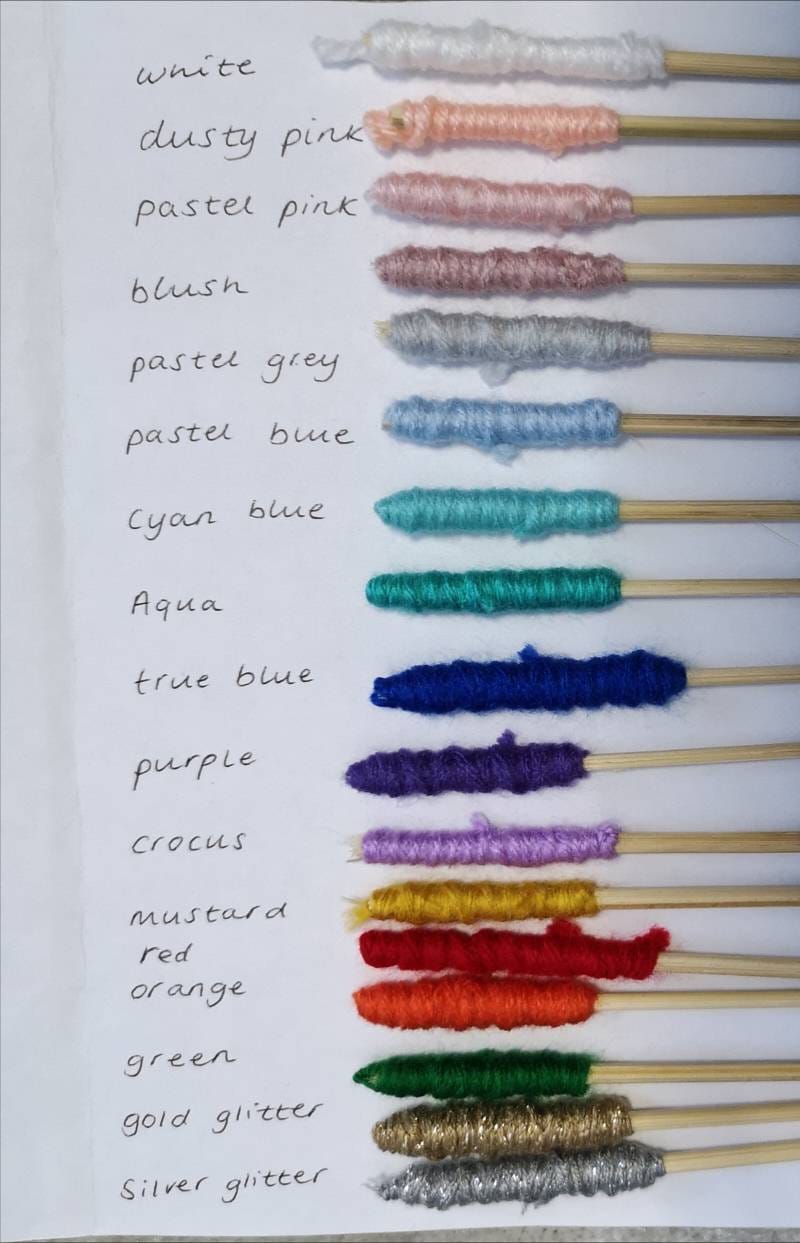 white
dusty pink
pastel pink
blush
pastel grey
pastel blue
Cyan blue
Aqua
true blue
purple
crocus
mustard
red
orange
green
gold glitter
Silver glitter